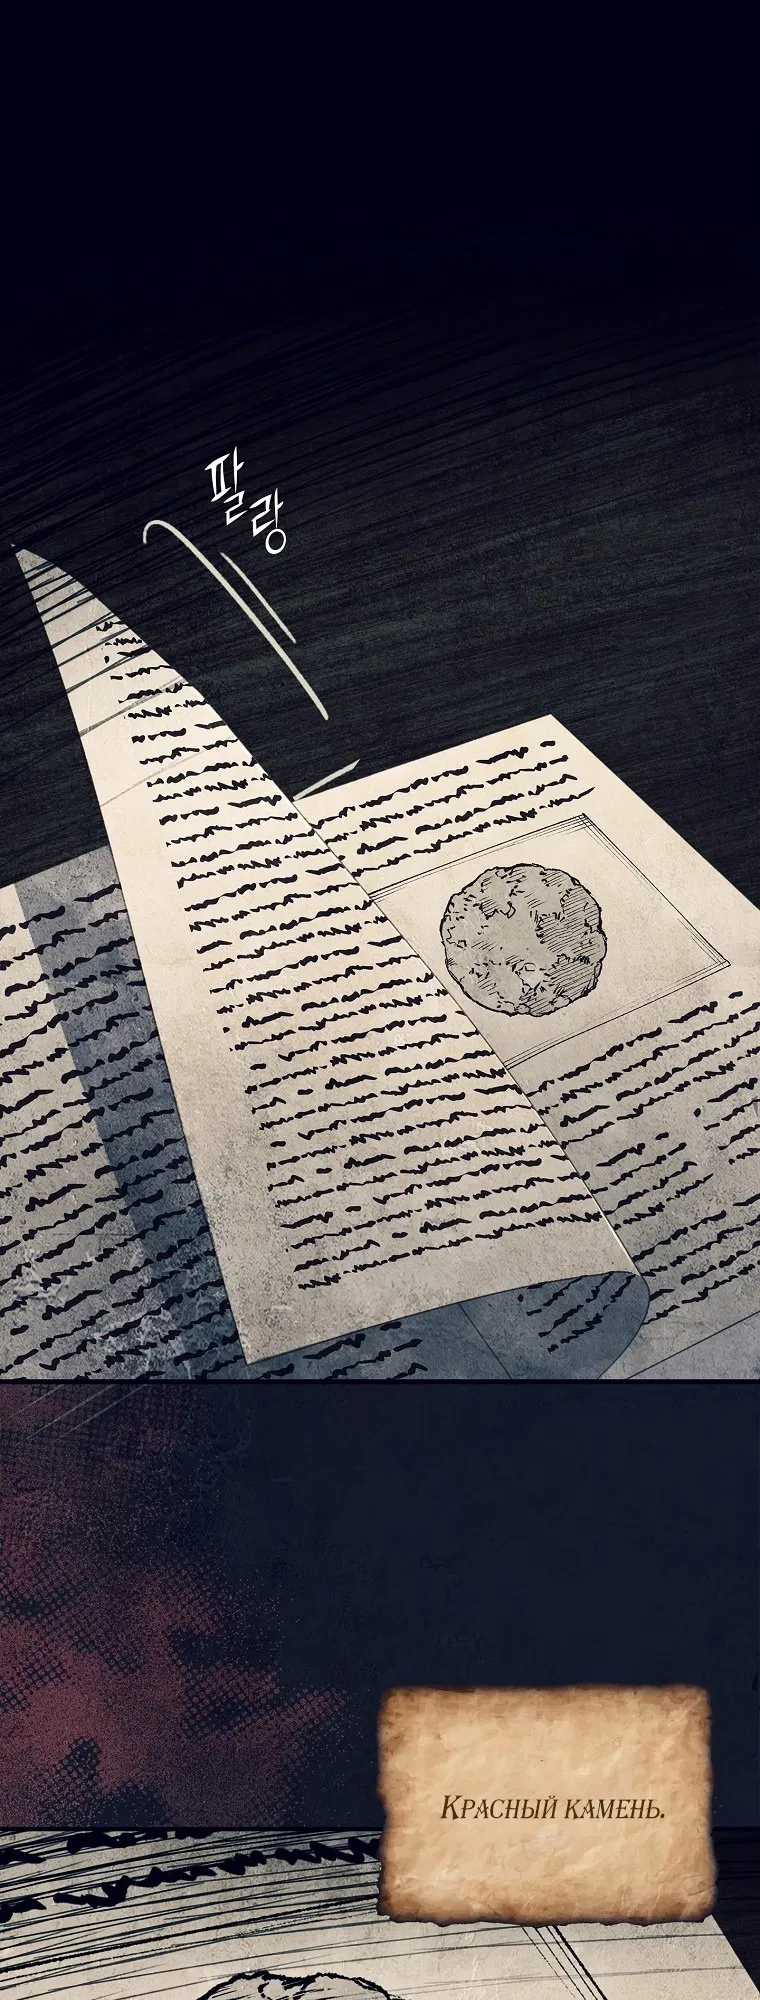 팔
랑
Красный камень.